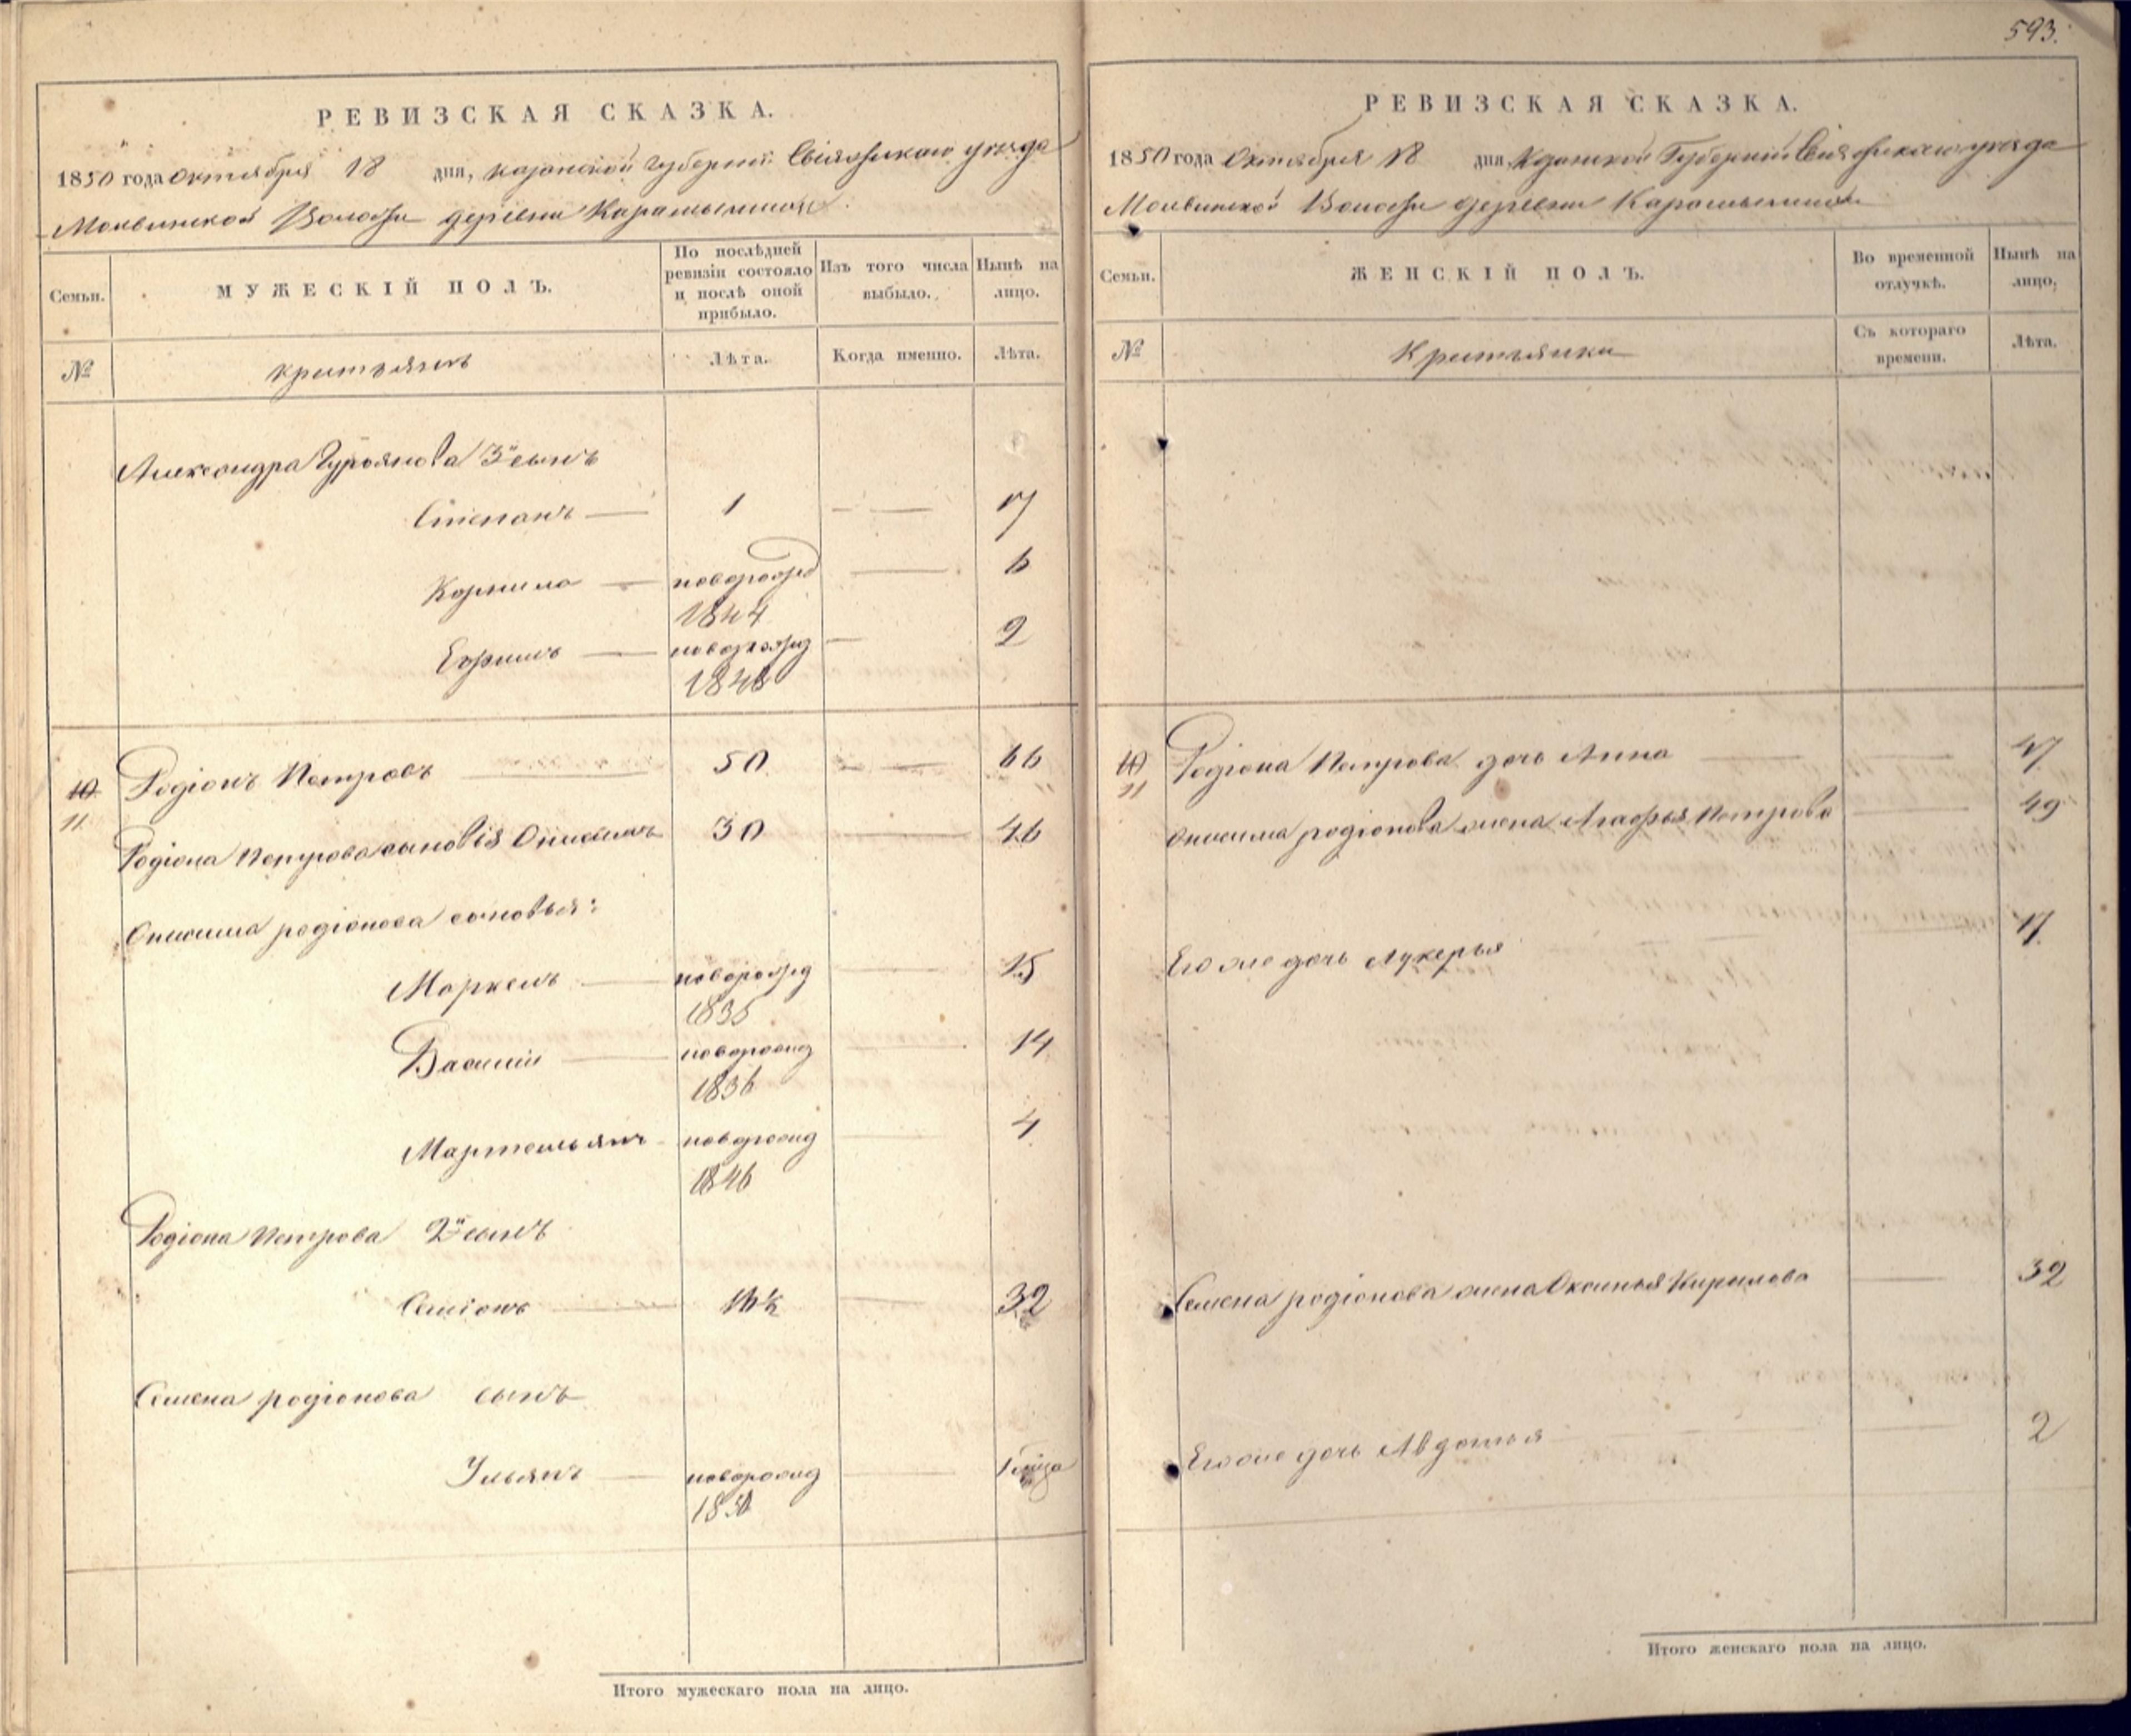 593.
РЕВИЗСКАЯ СКАЗКА.
1850 года октября 18 дня, казанской губернии Свіяжскаго уезда
Молвинской Волости деревни Карамышихи.
Семьи.
МУЖЕСКІЙ ПОЛЪ.
По послѣдней ревизіи состояло и послѣ оной прибыло.
Изъ того числа выбыло.
Нынѣ на лицо.
№
крестьянъ
Лѣта.
Когда именно.
Лѣта.
Александра Гурьянова 3й сынъ
Степанъ — 1 — — 17
Корнило — новорожд — 6
1844
Ефимъ — новорожд — 2
1848
10 Родіонъ Петровъ — 50 — — 66
11
Родіона Петрова сыновія Онисимъ 30 — 46
Онисима родіонова сыновья:
Маркелъ — новорожд — 15
1835
Василій — новорожд — 14
1836
Мартемьянъ — новорожд — 4
1846
Родіона Петрова 2й сынъ
Семіонъ — 16½ — 32
Семена родіонова сынъ
Ульянъ — новорожд —
1850
Итого мужескаго пола на лицо.
РЕВИЗСКАЯ СКАЗКА.
1850 года Октября 18 дня, Казанской Губерніи Свіяжскаго уезда
Молвинской Волости деревни Карамышихи
Семьи.
ЖЕНСКІЙ ПОЛЪ.
Во временной отлучкѣ.
Нынѣ на лицо,
№
Крестьянки
Съ котораго времени.
Лѣта.
10 Родіона Петрова дочь Анна — — 47
11
Онисима родіонова жена Агафья Петрова — 49
Его же дочь Лукерья 17
Семена родіонова жена Оксинья Кирилова — 32
Его же дочь Авдотья — — 2
Итого женскаго пола на лицо.